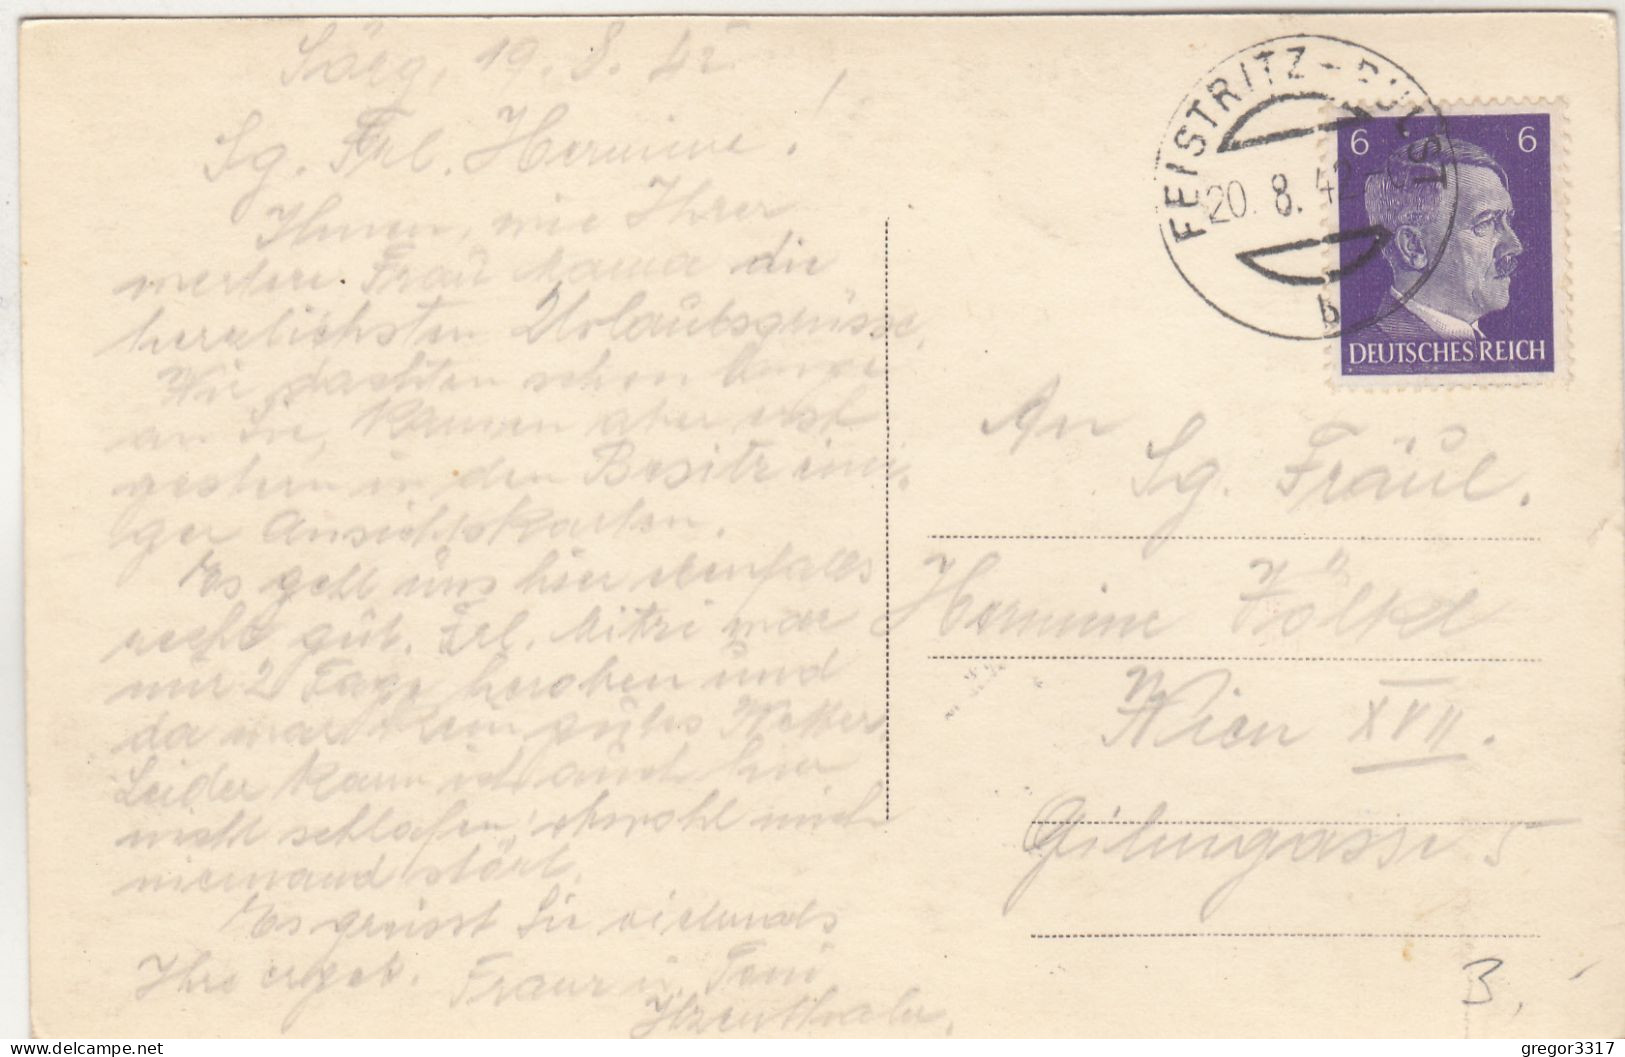 Sörg, 19. 8. 42
Sg. Frl. Hermine!
Ihnen, wie Ihrer
werten Frau Mama die
herzlichsten Urlaubsgrüsse.
Wir dachten schon
an Sie, kamen aber erst
gestern in den Besitz eini-
ger Ansichtskarten.
Es geht uns hier ebenfalls
recht gut. Frl. Mitzi war
nur 2 Tage heroben und
da war kein gutes Wetter.
Leider kann ich auch hier
nicht schlafen, obwohl mich
niemand stört.
Es grüsst Sie vielmals
Ihre ergeb. Franz u. Toni
FEISTRITZ-PULST
20. 8. 42
b
6 6
DEUTSCHES REICH
An
Sg. Fräul.
Hermine Wölkl
Wien XVII.
Gilmgasse 5
3.
gregor3317